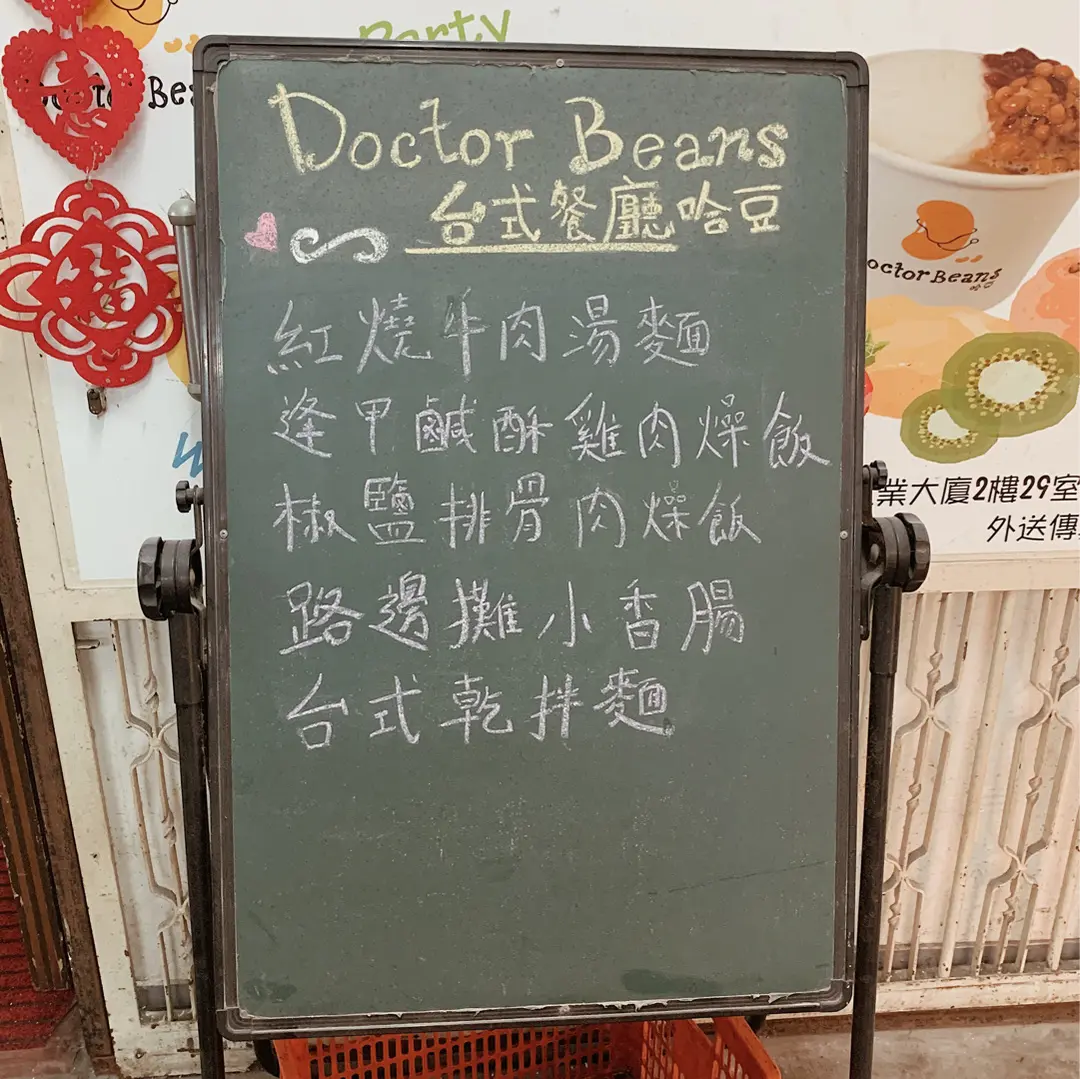 Party
Doctor Beans
台式餐廳哈豆
紅燒牛肉湯麵
逢甲鹹酥雞肉燥飯
椒鹽排骨肉燥飯
路邊攤小香腸
台式乾拌麵
福
octor Beans
哈豆
業大廈2樓29室
外送傳